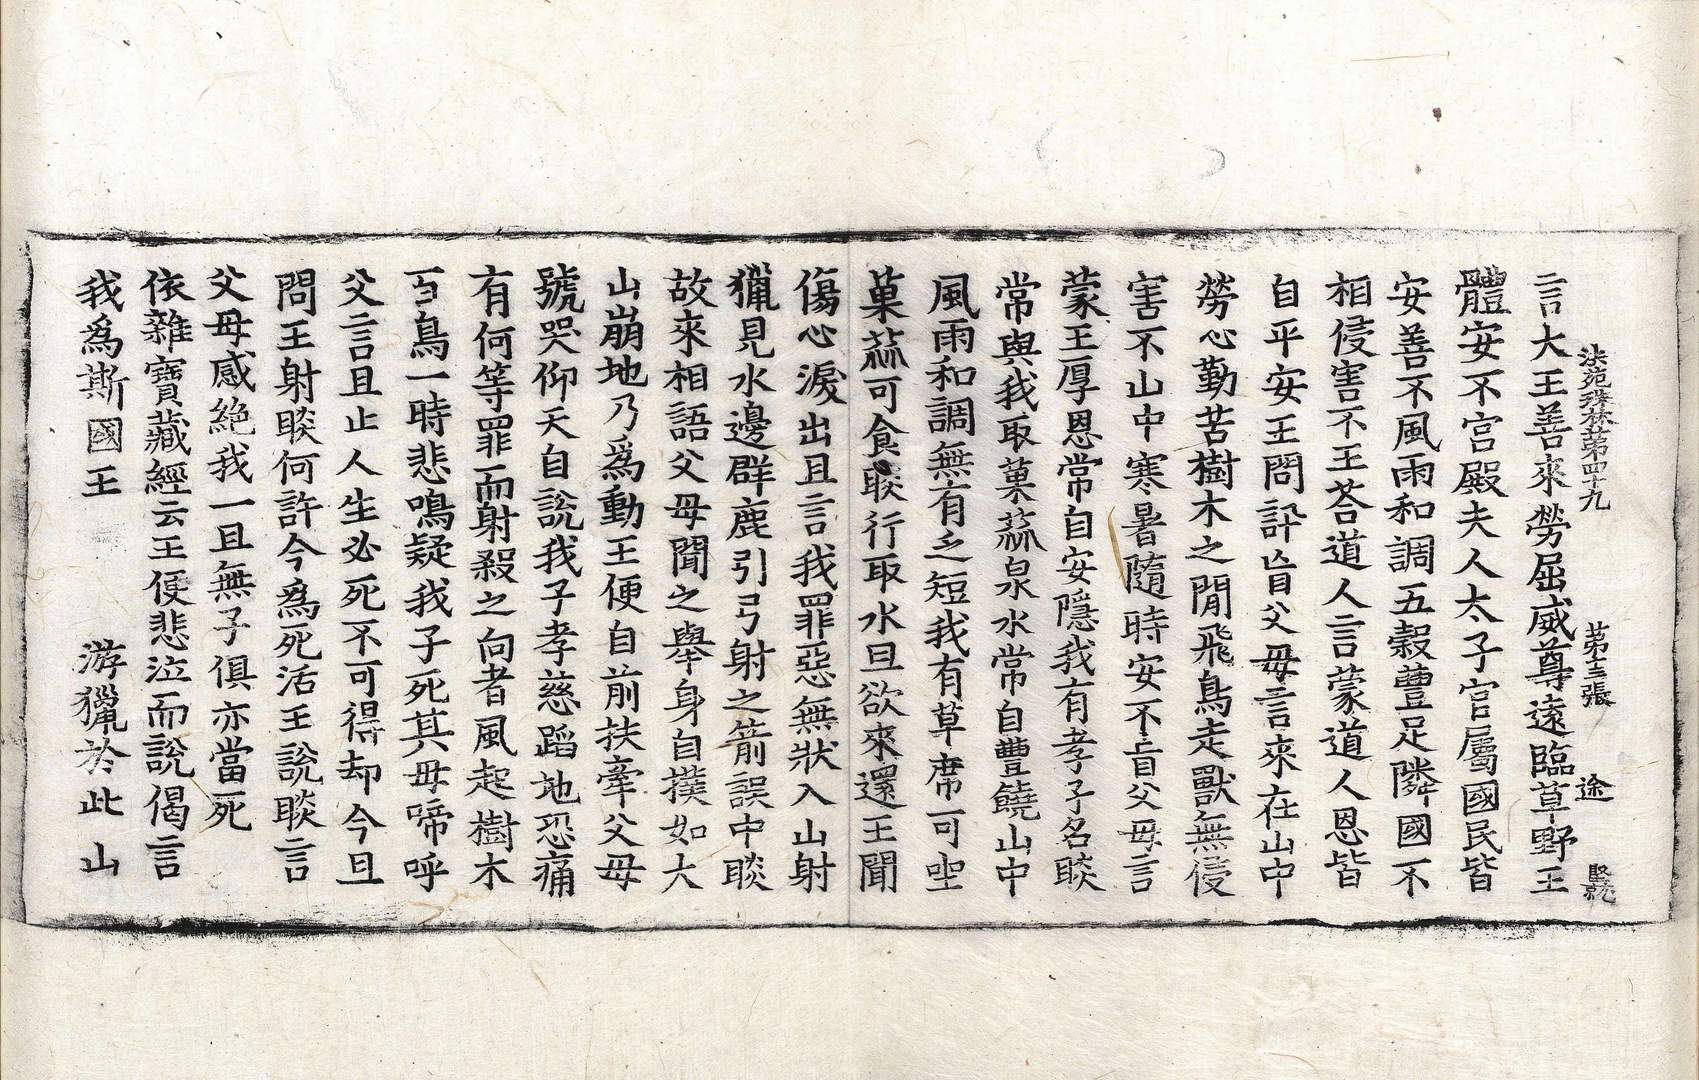 法苑珠林第四十九 第三張 途
言大王善來勞屈威尊遠臨草野王
體安不宮殿夫人太子官屬國民皆
安善不風雨和調五穀豐足隣國不
相侵害不王荅道人言蒙道人恩皆
自平安王問訃盲父母言來在山中
勞心勤苦樹木之閒飛鳥走獸無侵
害不山中寒暑隨時安不盲父母言
蒙王厚恩常自安隱我有孝子名睒
常與我取菓蓏泉水常自豐饒山中
風雨和調無有乏短我有草席可坐
菓蓏可食睒行取水旦欲來還王聞
傷心淚出且言我罪惡無狀入山射
獵見水邊群鹿引弓射之箭誤中睒
故來相語父母聞之舉身自撲如大
山崩地乃爲動王便自前扶牽父母
號哭仰天自說我子孝慈蹈地恐痛
有何等罪而射殺之向者風起樹木
百鳥一時悲鳴疑我子死其母啼呼
父言且止人生必死不可得却今且
問王射睒何許今爲死活王說睒言
父母感絶我一旦無子俱亦當死
依雜寶藏經云王便悲泣而說偈言
我爲斯國王 游獵於此山